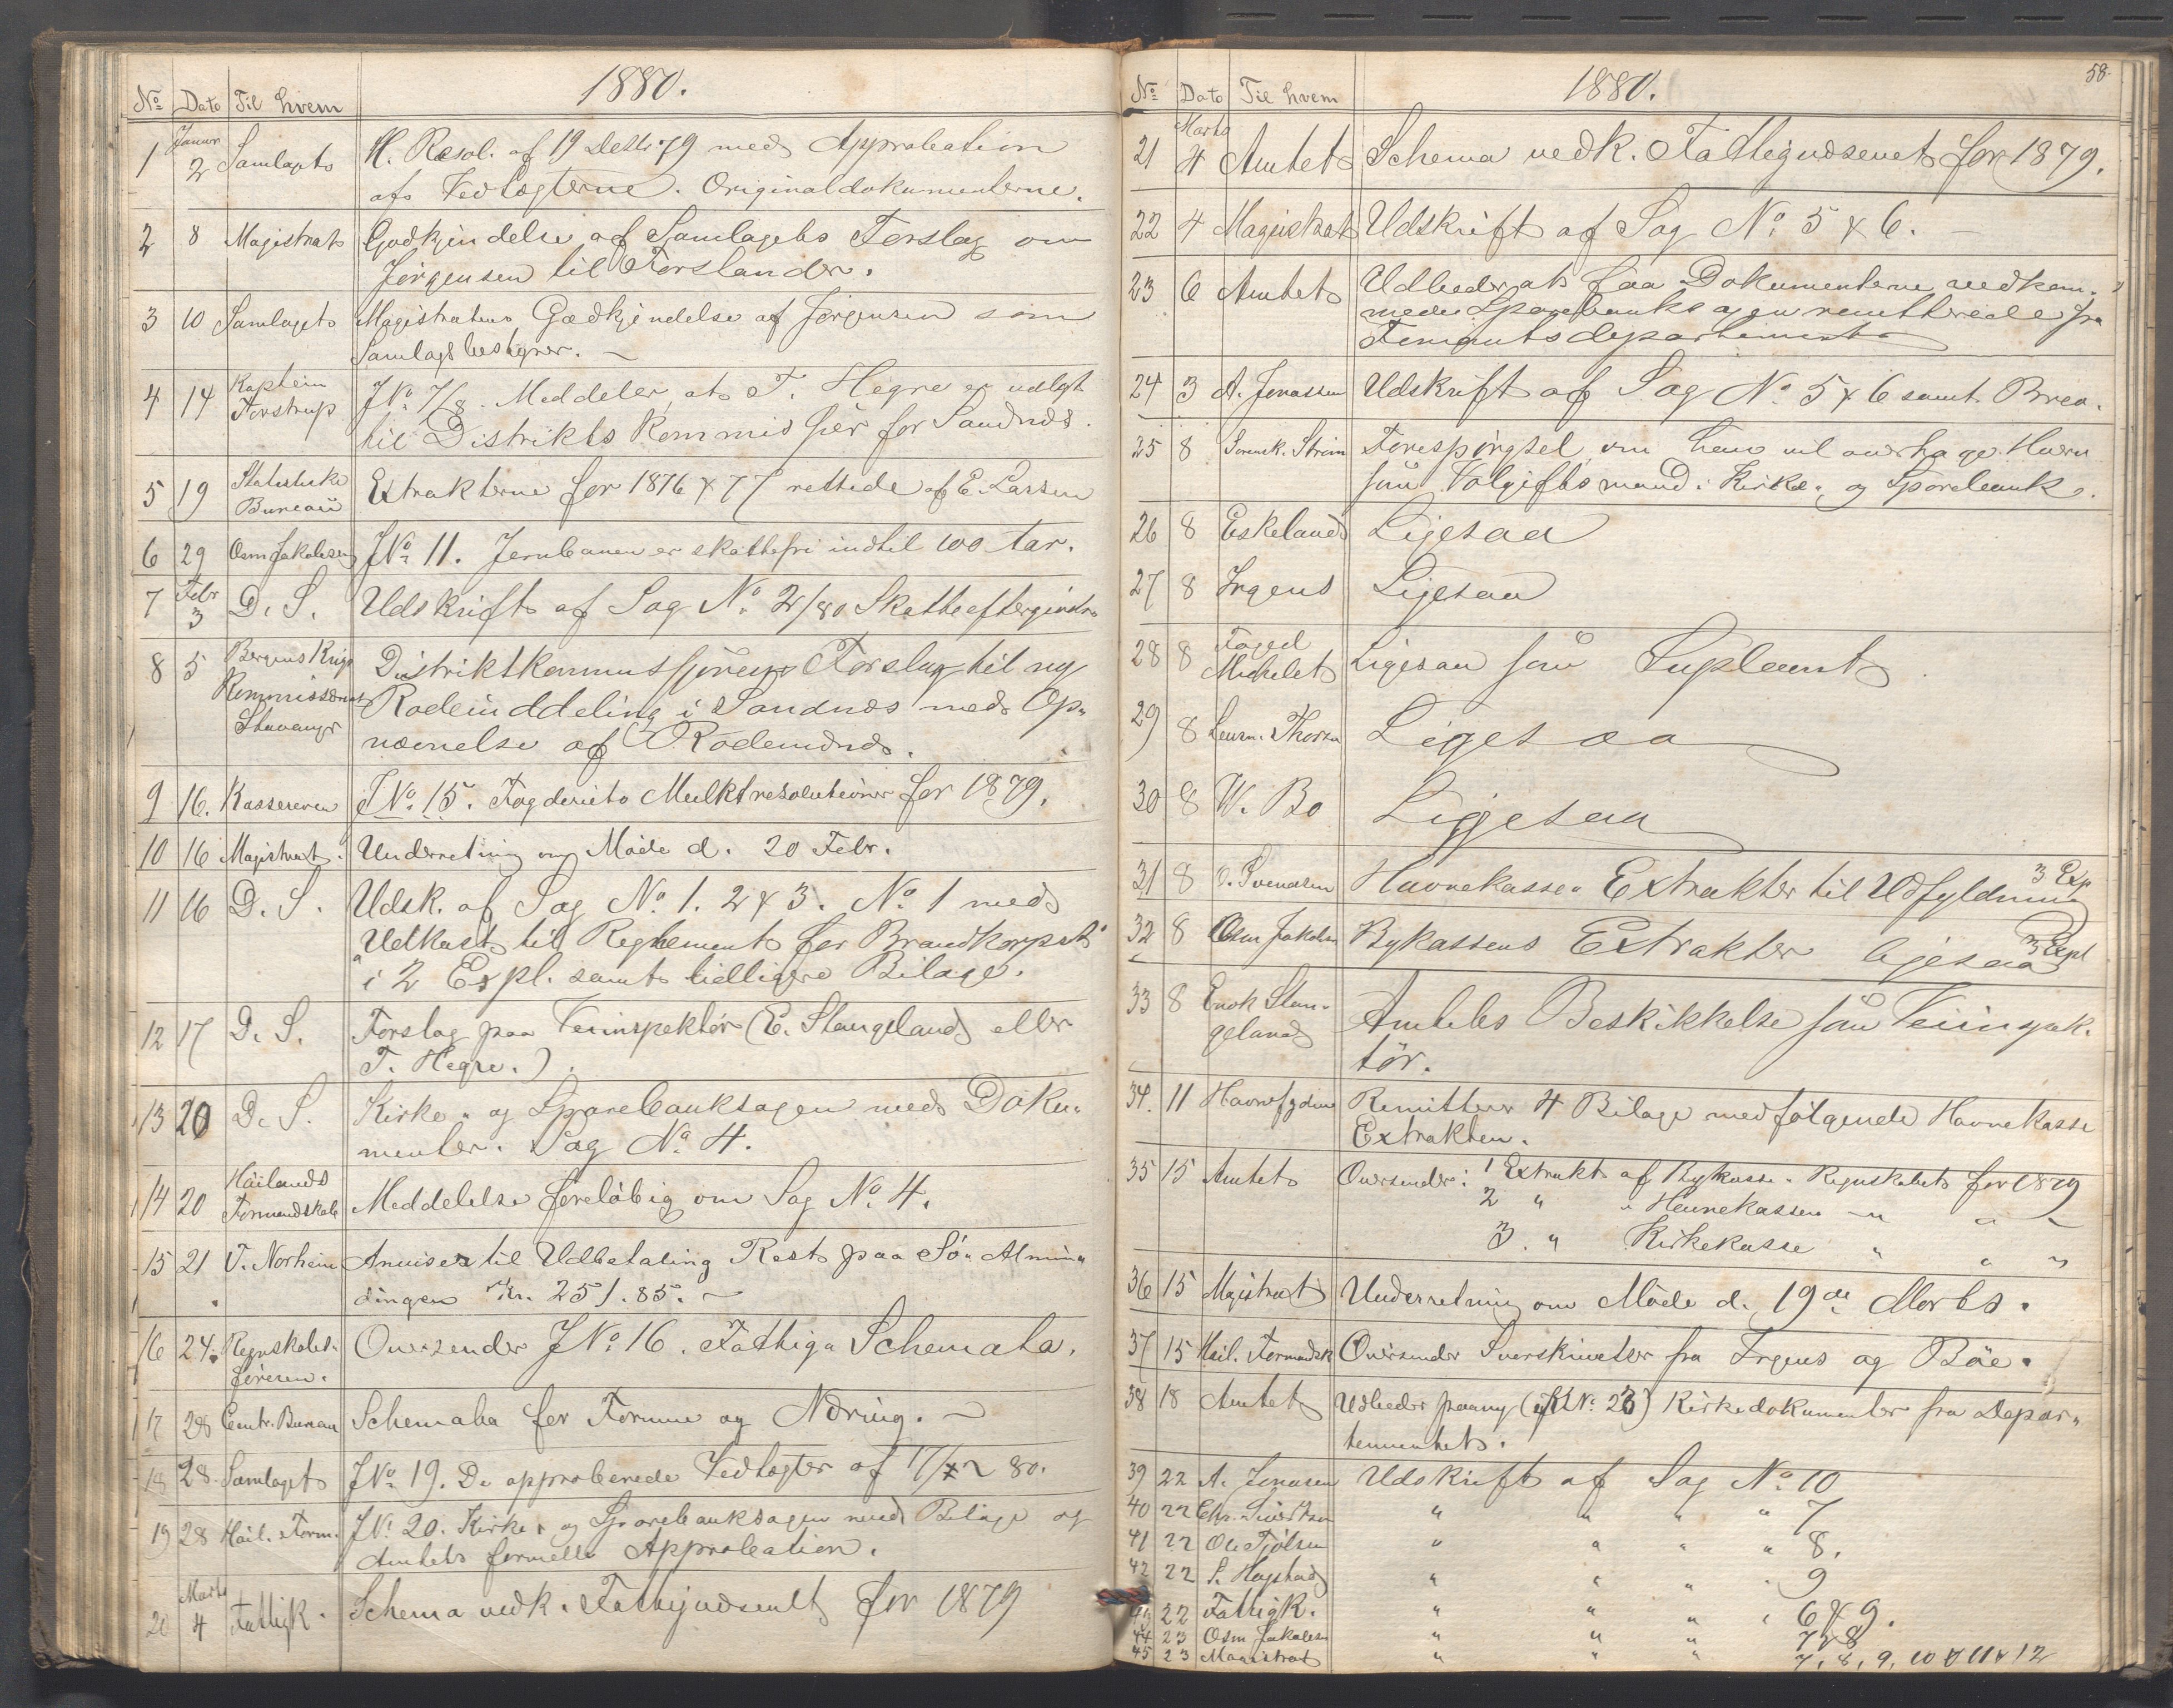 1880.
No Dato Til hvem
1 Januar 2 Samlaget K. Resol. af 19 Decbr 79 med Approbation
af Vedtægterne. Originaldokumenterne.
2 8 Magistrat Godkjendelse af Samlagets Forslag om
Jörgensen til Forstander.
3 10 Samlaget Magistratens Godkjendelse af Jörgensen som
Samlagsbestyrer.
4 14 Kaptein JNo 7/8. Meddeler, at T. Hegre er valgt
Forstrup til Distrikts Kommissær for Sandnæs.
5 19 Statistiske Bureau Extrakterne for 1876 & 77 rettede af E. Larsen
6 29 Osm Jakobsen JNo 11. Jernbanen er skattefri indtil 100 Aar.
7 Febr 3 D. S. Udskrift af Sag No 2/80 Skatteeftergivelse
8 5 Bergens Krigs Distriktskommissærens Forslag til ny
Kommissariat Rodeinddeling i Sandnæs med Op-
Stavanger nævnelse af Rodemænd.
9 16. Kassereren JNo 15. Fogderiets Mulktresolutioner for 1879.
10 16 Magistrat. Underretning om Möde d. 20 Febr.
11 16 D. S. Udsk. af Sag No 1. 2 & 3. No 1 med
"Udkast til Reglement for Brandkorpset"
i 2 Expl. samt tidligere Bilage.
12 17 D. S. Forslag paa Veiinspektör (E. Stangeland eller
T. Hegre.)
13 20 D. S. Kirke- og Sparebanksagen med Doku-
menter. Sag No 4.
14 20 Häilands
Formandskab Meddelelse foreløbig om Sag No 4.
15 21 T. Norheim Anviser til Udbetaling Rest paa Sö- Almin-
dingen Kr. 251.85.
16 24. Regnskabs- Oversender JNo 16. Fattig- Schemata.
föreren.
17 28 Centr. Bureau Schemata for Formue og Næring.
18 28 Samlaget JNo 19. De approberede Vedtægter af 17/2 80.
19 28 Häil. Form. JNo 20. Kirke- og Sparebanksagen med Bilage og
Amtets formelle Approbation.
20 Marts 4 Fattigk. Schema vedk. Fattigvæsenet for 1879
58.
1880.
No Dato Til hvem
21 Marts 4 Amtet Schema vedk. Fattigvæsenet for 1879.
22 4 Magistrat Udskrift af Sag No 5 & 6.
23 6 Amtet Udbeder at faa Dokumenterne vedkom-
mende Sparebanksagen remitterede fra
Departementet
24 3 A. Jonassen Udskrift af Sag No 5 & 6 samt Brev.
25 8 Sorensk. Ström Forespörgsel, om han vil modtage Hverv
som Voldgiftsmand i Kirke- og Sparebanks.
26 8 Eskeland Ligesaa
27 8 Irgens Ligesaa
28 8 Foged
Michelet Ligesaa som Supleant
29 8 Thorsen Ligesaa
30 8 W. Bö Ligesaa
31 8 O. Svendsen Havnekasse- Extrakter til Udfyldning 3 Exp
32 8 Osm Jakobsen Bykassens Extrakter ligesaa 3 Expl
33 8 Enok Stan-
geland Amtets Beskikkelse som Veiinspek-
tör.
34. 11 Havnefogden Remitterer 4 Bilage medfölgende Havnekasse
Extrakten.
35 15 Amtet Oversender: 1 Extrakt af Bykasse- Regnskabet for 1879
2 " " Havnekassen " " "
3. " Kirkekasse " " "
36 15 Magistrat Underretning om Möde d. 19de Marts.
37 15 Häil. Formandsk Oversender Svarskrivelser fra Irgens og Böe.
38 18 Amtet Udbeder paany (cfr No 23) Kirkedokumenter fra Depar-
tementet.
39 22 A. Jonasen Udskrift af Sag No 10
40 22 Chr. Sivertsen " " " " 7
41 22 Ole Tjölsen " " " " 8.
42 22 S. Hagstad " " " " 9
43 22 Fattigk. " " " " 6 & 9.
44 23 Osm Jakobsen " " " 7 & 8
45 23 Magistrat " " " 7, 8, 9, 10 & 11 & 12